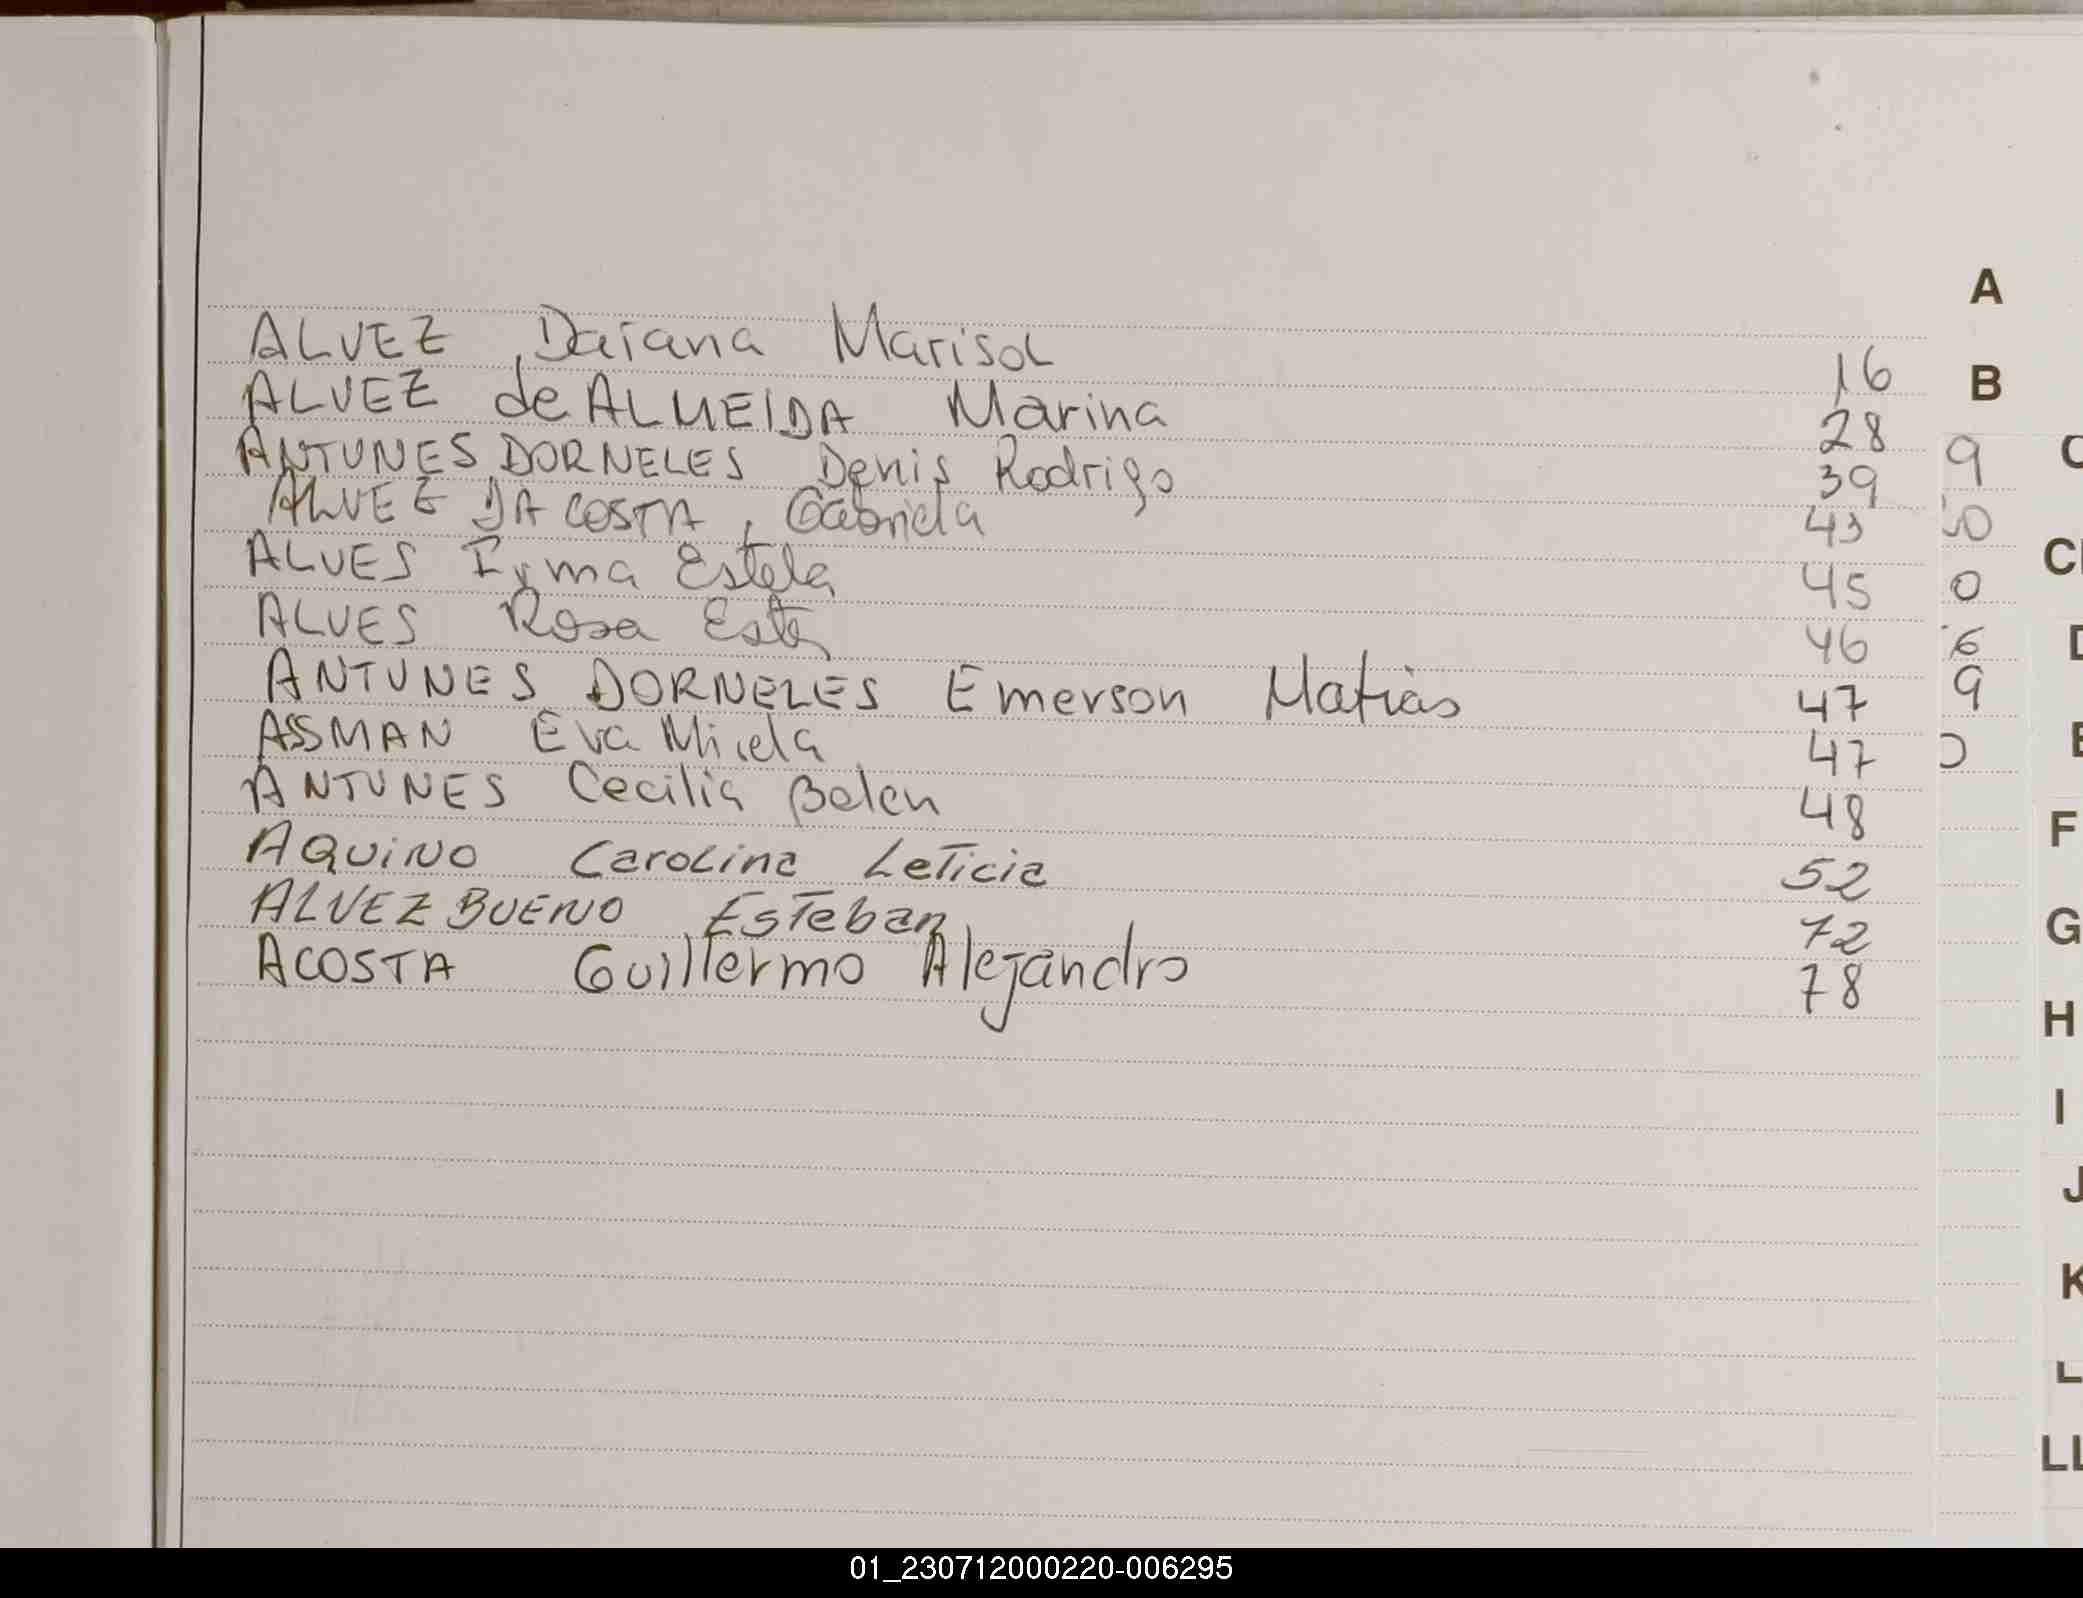 A
B
ALVEZ, Daiana Marisol 16
ALVEZ de ALMEIDA Marina 28
ANTUNES DORNELES Denis Rodrigo 39
ALVEZ DA COSTA, Gabriela 43
ALVES Irma Estela 45
ALVES Rosa Ester 46
ANTUNES DORNELES Emerson Matias 47
ASSMAN Eva Micela 47
ANTUNES Cecilia Belen 48
AQUINO Carolina Leticia 52
ALVEZ BUENO Esteban 72
ACOSTA Guillermo Alejandro 78
9
0
0
6
9
0
F
G
H
I
J
K
L
LL
01_230712000220-006295